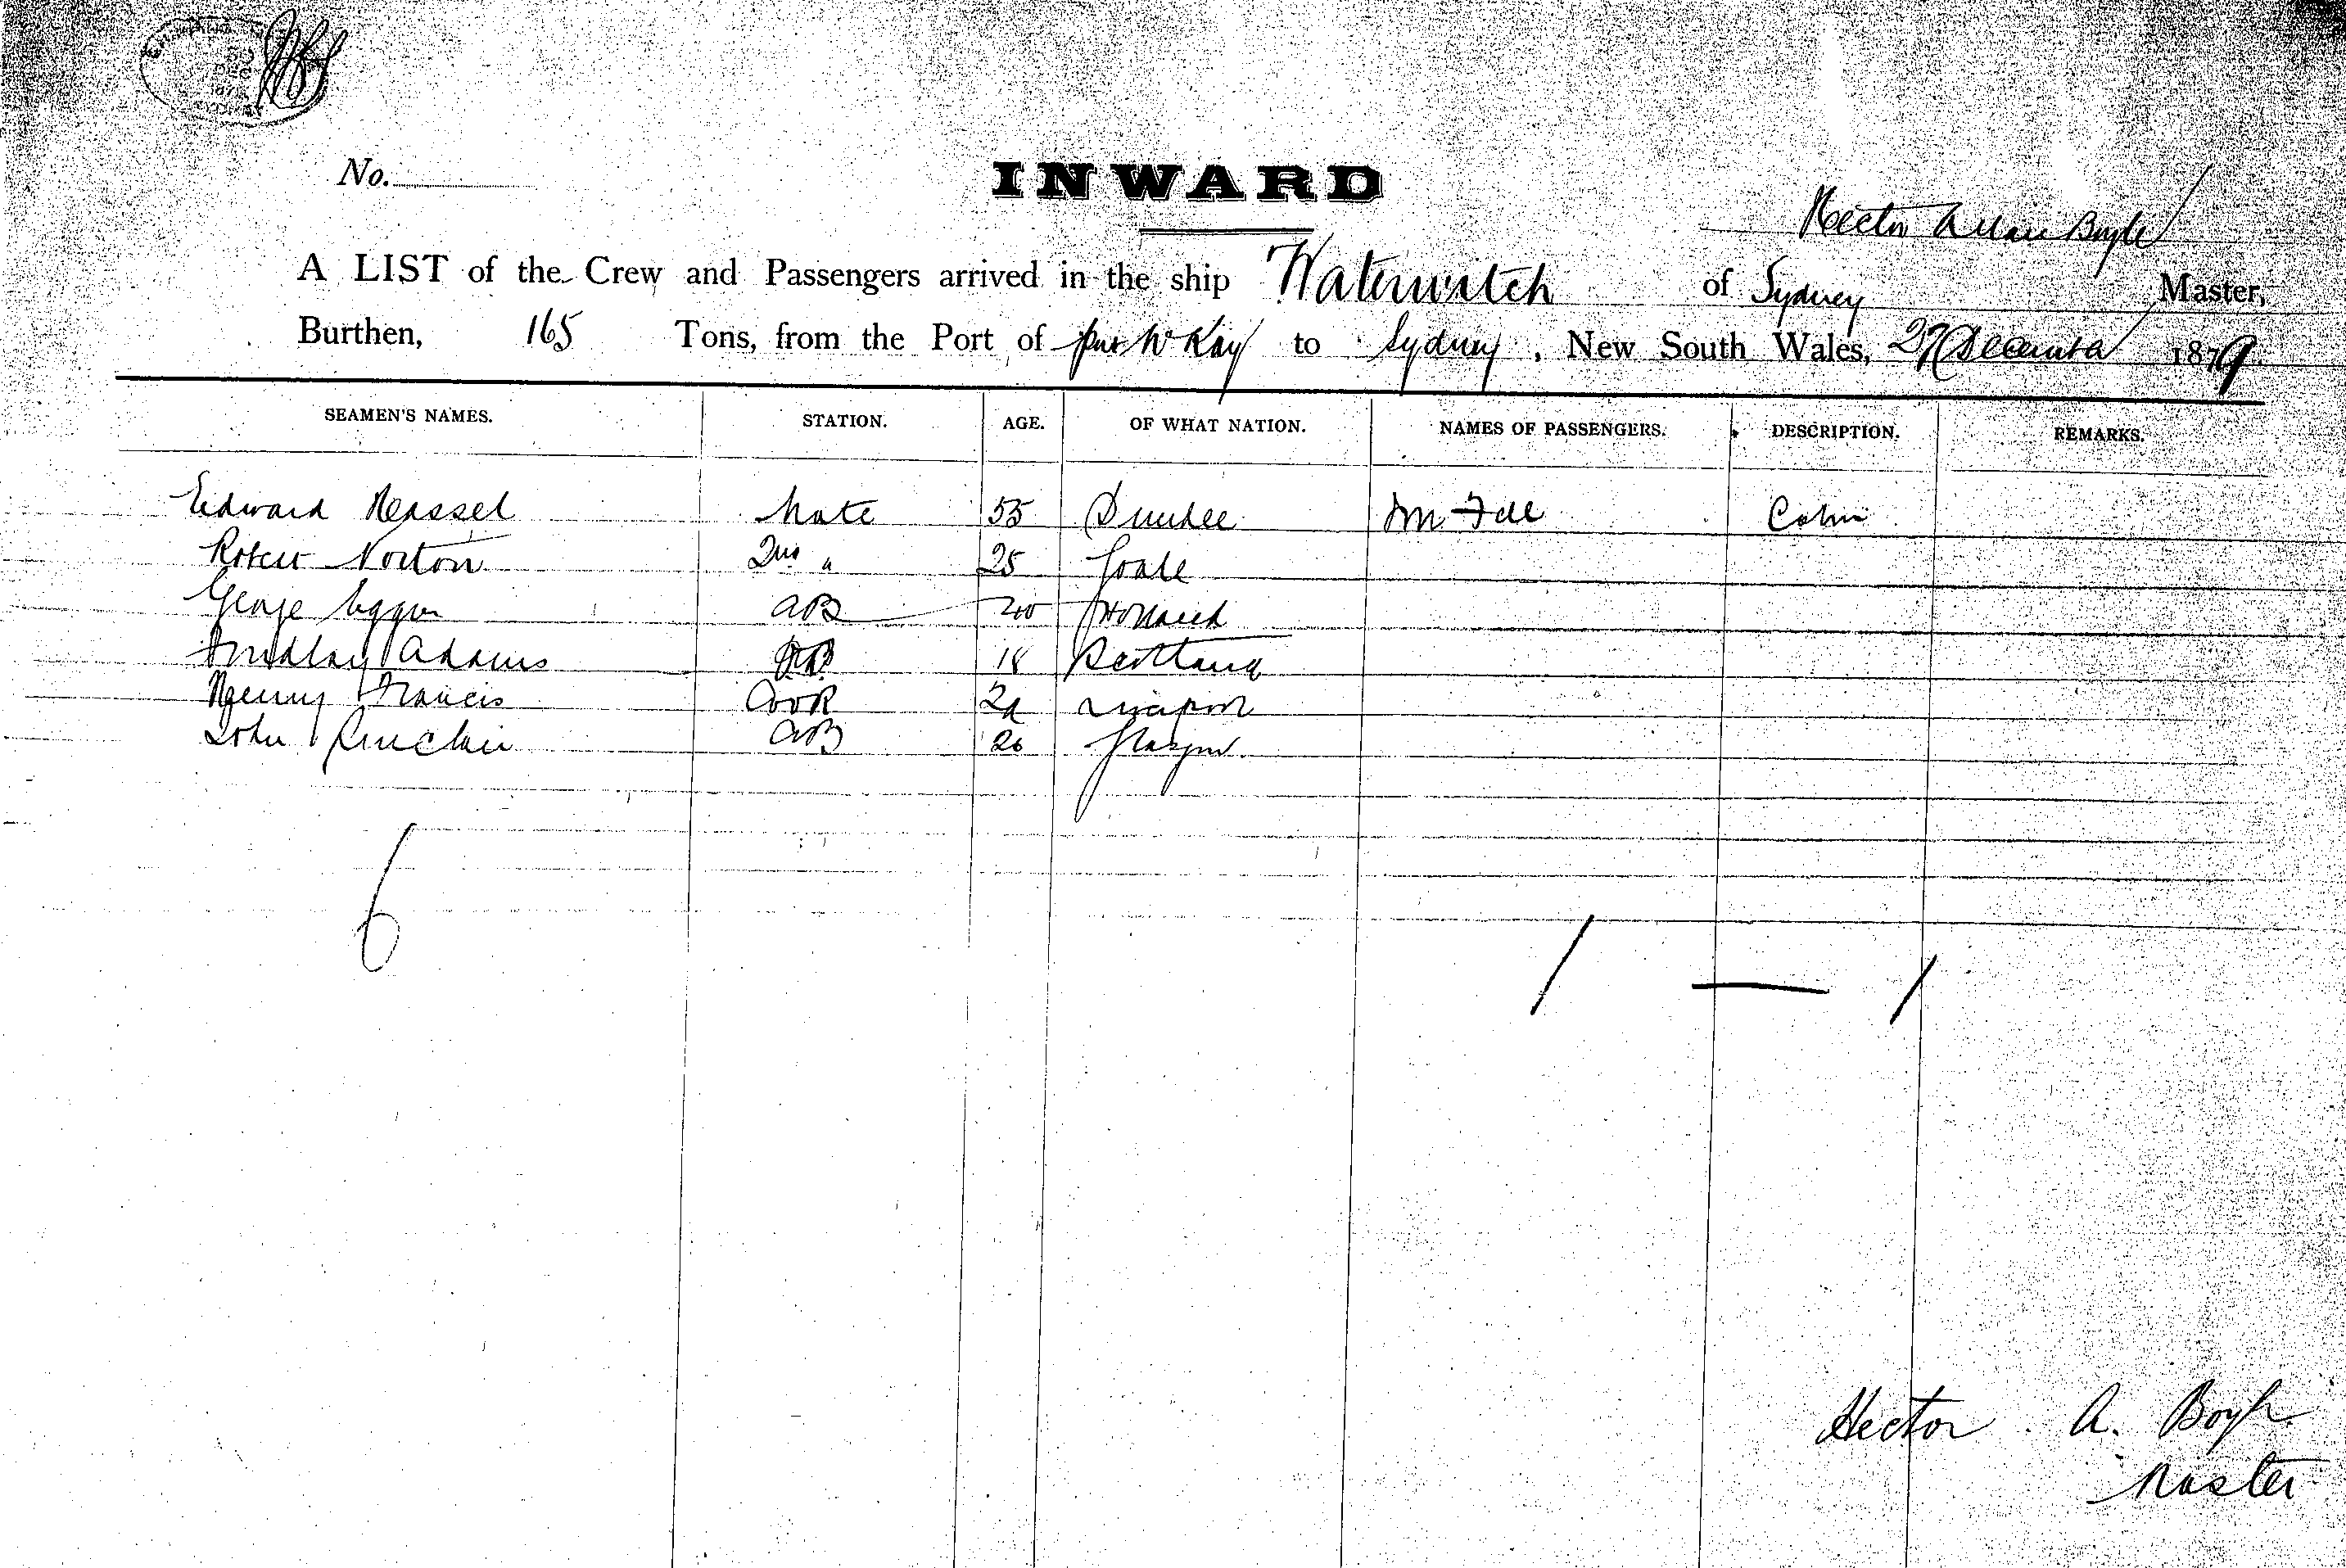 No.
INWARD
Hector Allan Boyle
A LIST of the Crew and Passengers arrived in the ship Waterwitch of Sydney Master,
Burthen, 165 Tons, from the Port of McKay to Sydney, New South Wales, 27 December 1879
SEAMEN'S NAMES. STATION. AGE. OF WHAT NATION. NAMES OF PASSENGERS. DESCRIPTION. REMARKS.
Edward Hassel Mate 55 Dundee Mr Fell Cabin
Robert Norton 2nd " 25 Goole
George AB Holland
Findlay Adams AB 18 Scotland
Henry Francis Cook Liverpool
John Sinclair AB 26 Glasgow
6
1 — 1
Hector A. Boyle
Master